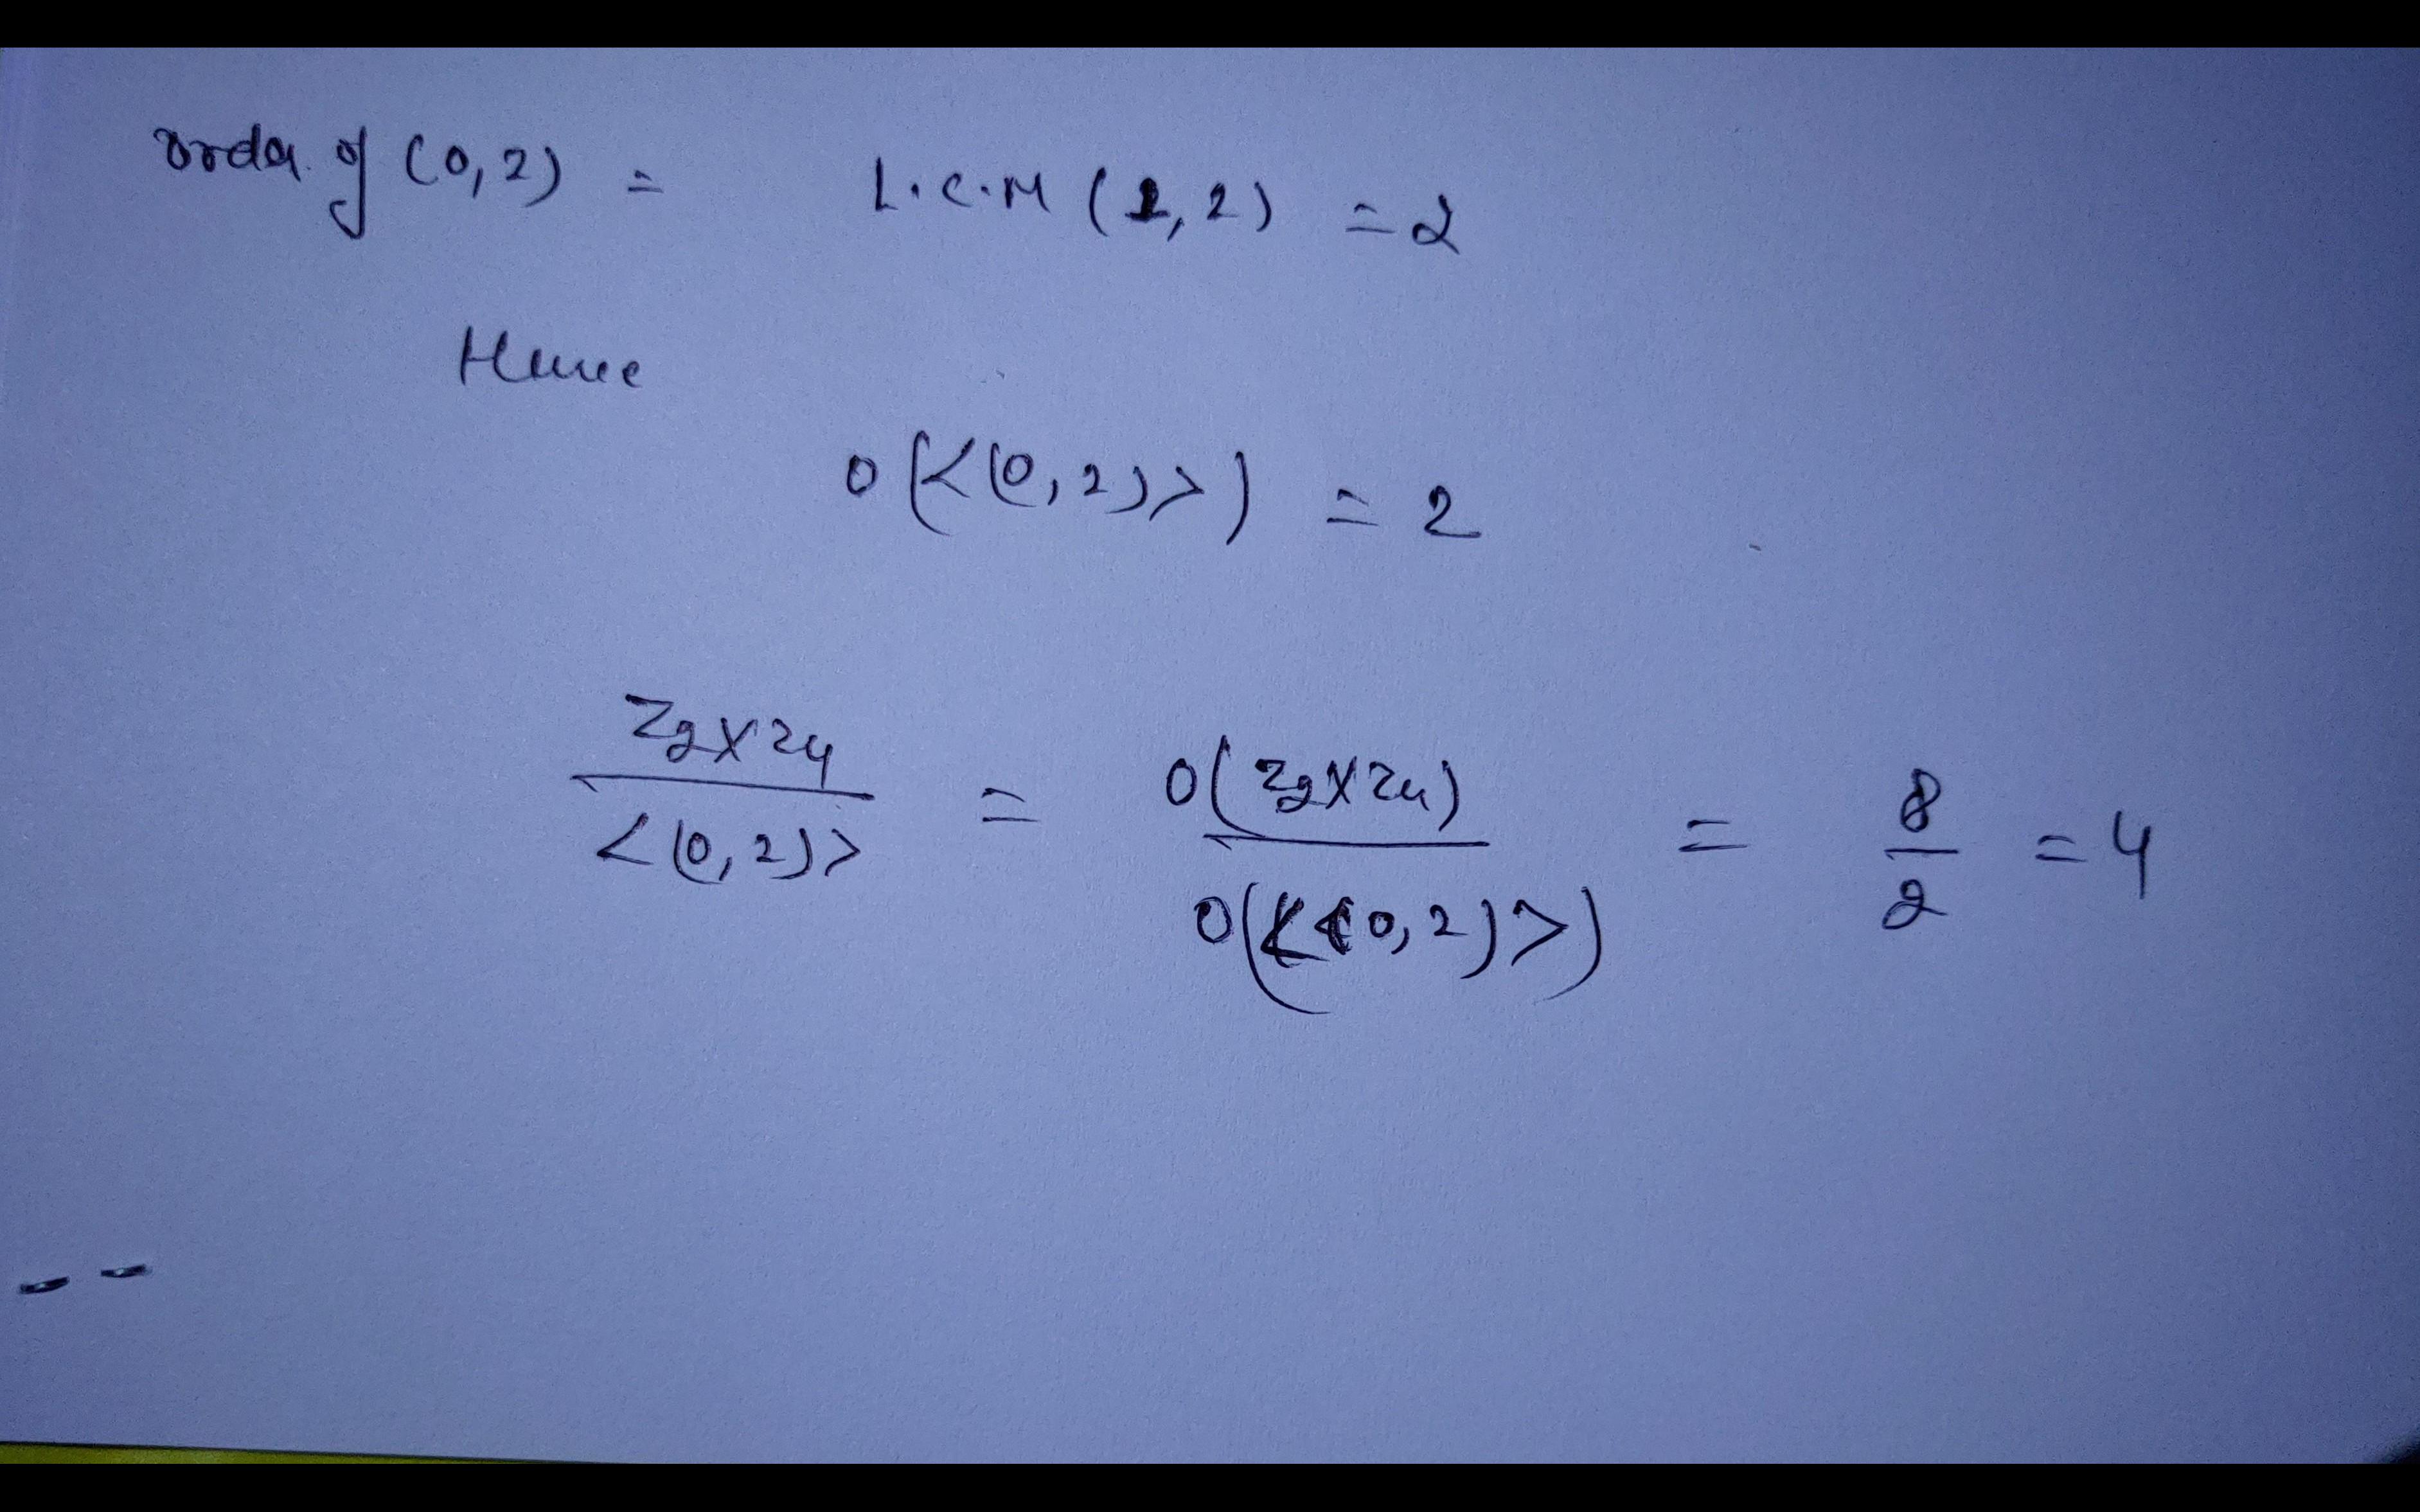 order of (0,2) = L.C.M (1,2) = 2
Hence
O(<(0,2)>) = 2
Z2×Z4 / <(0,2)> = O(Z2×Z4) / O(<(0,2)>) = 8/2 = 4